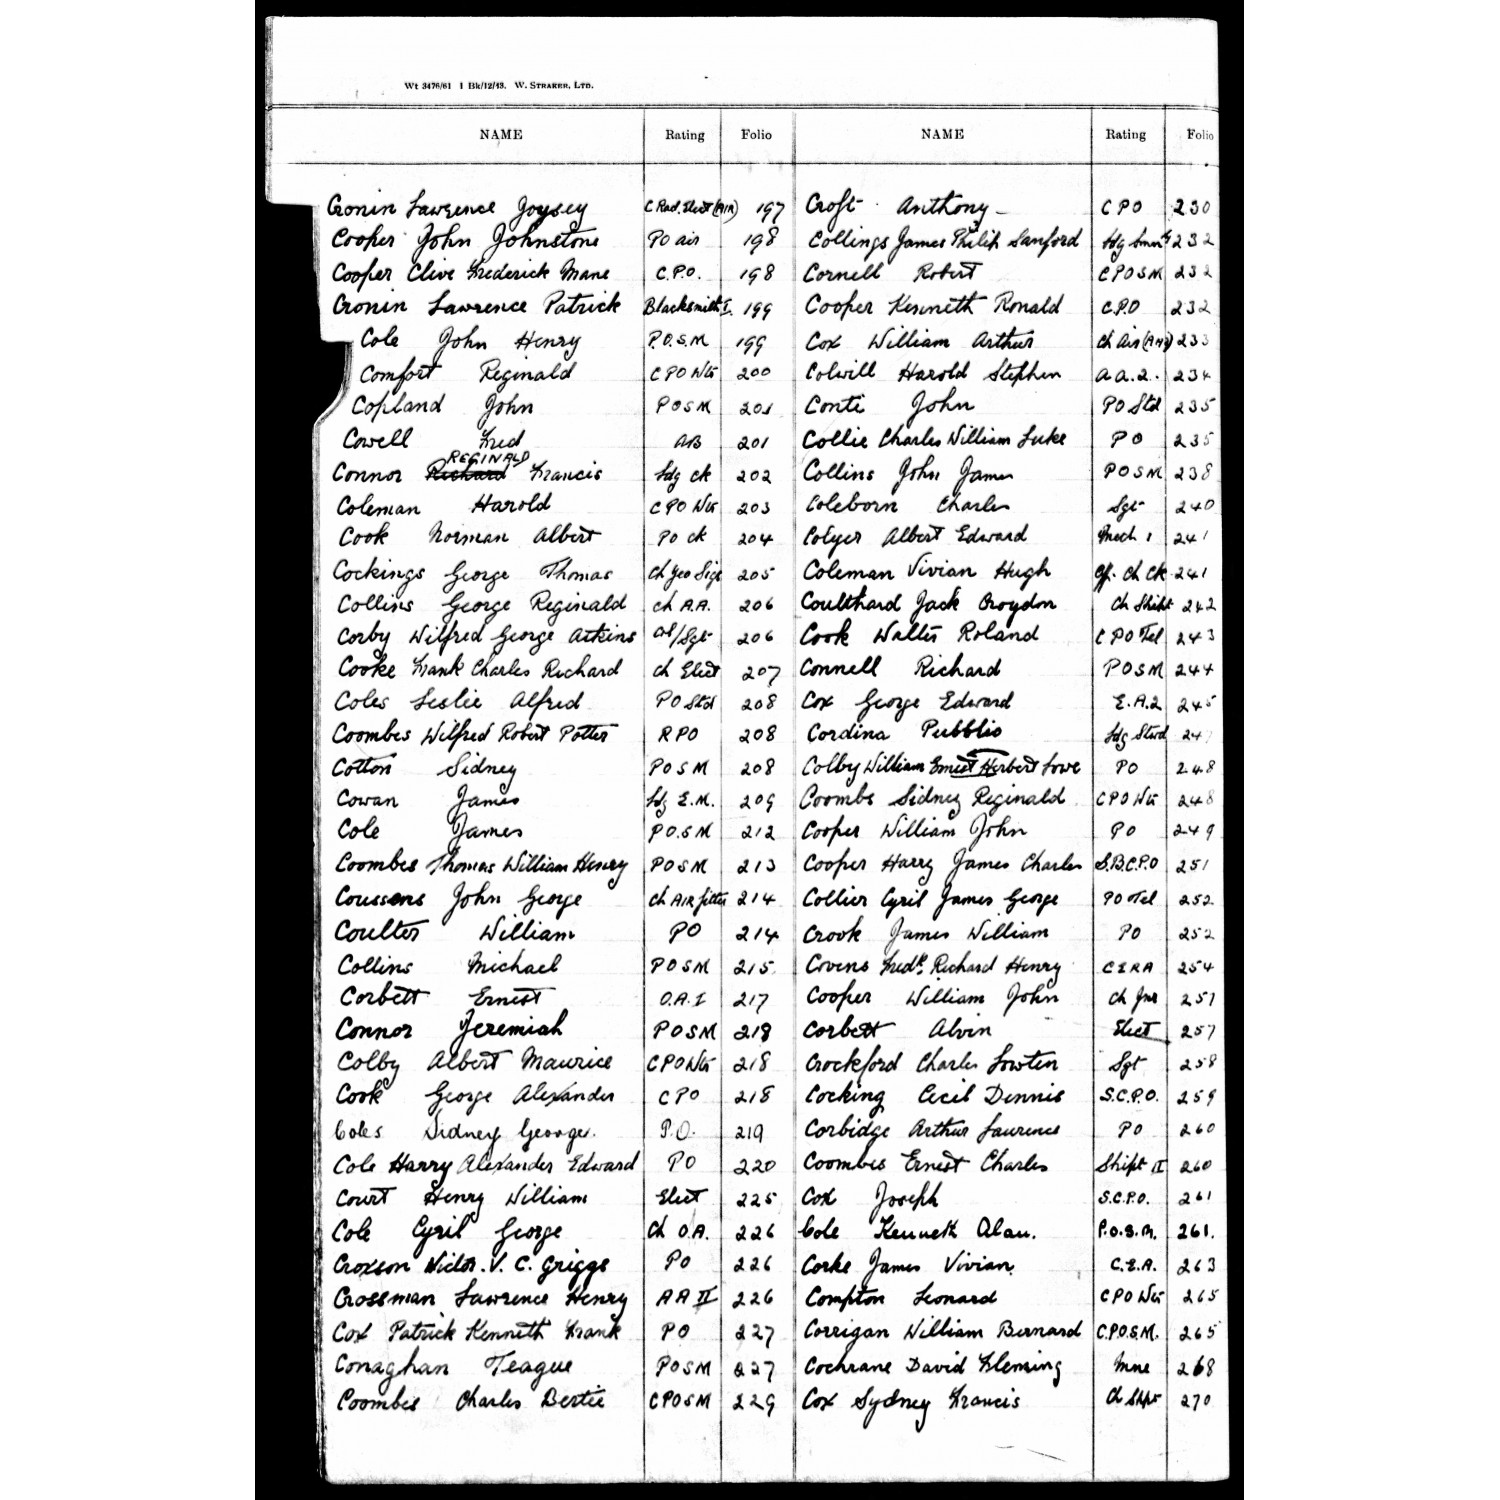 Wt 3476/61 1 Bk/12/43. W. STRAKER, LTD.
NAME Rating Folio NAME Rating Folio
Cronin Lawrence Joysey C Rad. Elect (AIR) 197
Cooper John Johnstone PO air 198
Cooper Clive Frederick Mane C.P.O. 198
Cronin Lawrence Patrick Blacksmith I. 199
Cole John Henry P.O.S.M 199
Comfort Reginald CPO Wtr 200
Copland John POSM 201
Cowell Fred AB 201
REGINALD
Connor Richard Francis Ldg ck 202
Coleman Harold CPO Wtr 203
Cook Norman Albert PO ck 204
Cockings George Thomas Ch Yeo Sigs 205
Collins George Reginald Ch A.A. 206
Corby Wilfred George Atkins /Sgt 206
Cooke Frank Charles Richard Ch Elect 207
Coles Leslie Alfred PO Std 208
Coombes Wilfred Robert Potter RPO 208
Cotton Sidney POSM 208
Cowan James Ldg E.M. 209
Cole James PO.SM 212
Coombes Thomas William Henry POSM 213
Coussens John George Ch AIR fitter 214
Coulter William PO 214
Collins Michael POSM 215
Corbett Ernest O.A.I 217
Connor Jeremiah POSM 218
Colby Albert Maurice CPO Wtr 218
Cook George Alexander CPO 218
Coles Sidney George. P.O. 219
Cole Harry Alexander Edward PO 220
Court Henry William Elect 225
Cole Cyril George Ch O.A. 226
Croxson Victor. V. C. Griggs PO 226
Crossman Lawrence Henry AA II 226
Cox Patrick Kenneth Frank PO 227
Conaghan Teague POSM 227
Coombes Charles Bertie CPOSM 229
Croft Anthony CPO 230
Collings James Philip Sanford Ldg 232
Cornell Robert CPOSM 232
Cooper Kenneth Ronald C.P.O 232
Cox William Arthur Ch Air 233
Colwill Harold Stephen A.A.2. 234
Conti John PO Std 235
Collie Charles William Luke PO 235
Collins John James POSM 238
Coleborn Charles Sgt 240
Colyer Albert Edward Mech 1 241
Coleman Vivian Hugh Off. Ch Ck 241
Coulthard Jack Croydon Ch Shipt 242
Cook Walter Roland CPO Tel 243
Connell Richard POSM 244
Cox George Edward E.A.2 245
Cordina Pubblio Ldg Stwd
Colby William Ernest Herbert Lowe PO 248
Coombs Sidney Reginald CPO Wtr 248
Cooper William John PO 249
Cooper Harry James Charles S.B.C.P.O 251
Collier Cyril James George PO Tel 252
Crook James William PO 252
Covens Fredk. Richard Henry CERA 254
Cooper William John Ch Jnr 257
Corbett Alvin Elect 257
Crockford Charles Lowten Sgt 258
Cocking Cecil Dennis S.C.P.O. 259
Corbidge Arthur Laurence PO 260
Coombes Ernest Charles Shipt II 260
Cox Joseph S.C.P.O. 261
Cole Kenneth Alan. P.O.S.M. 261.
Corke James Vivian C.E.A. 263
Compton Leonard CPO Wtr 265
Corrigan William Bernard C.P.O.S.M. 265
Cochrane David Fleming Mne 268
Cox Sydney Francis Ch Shpt 270